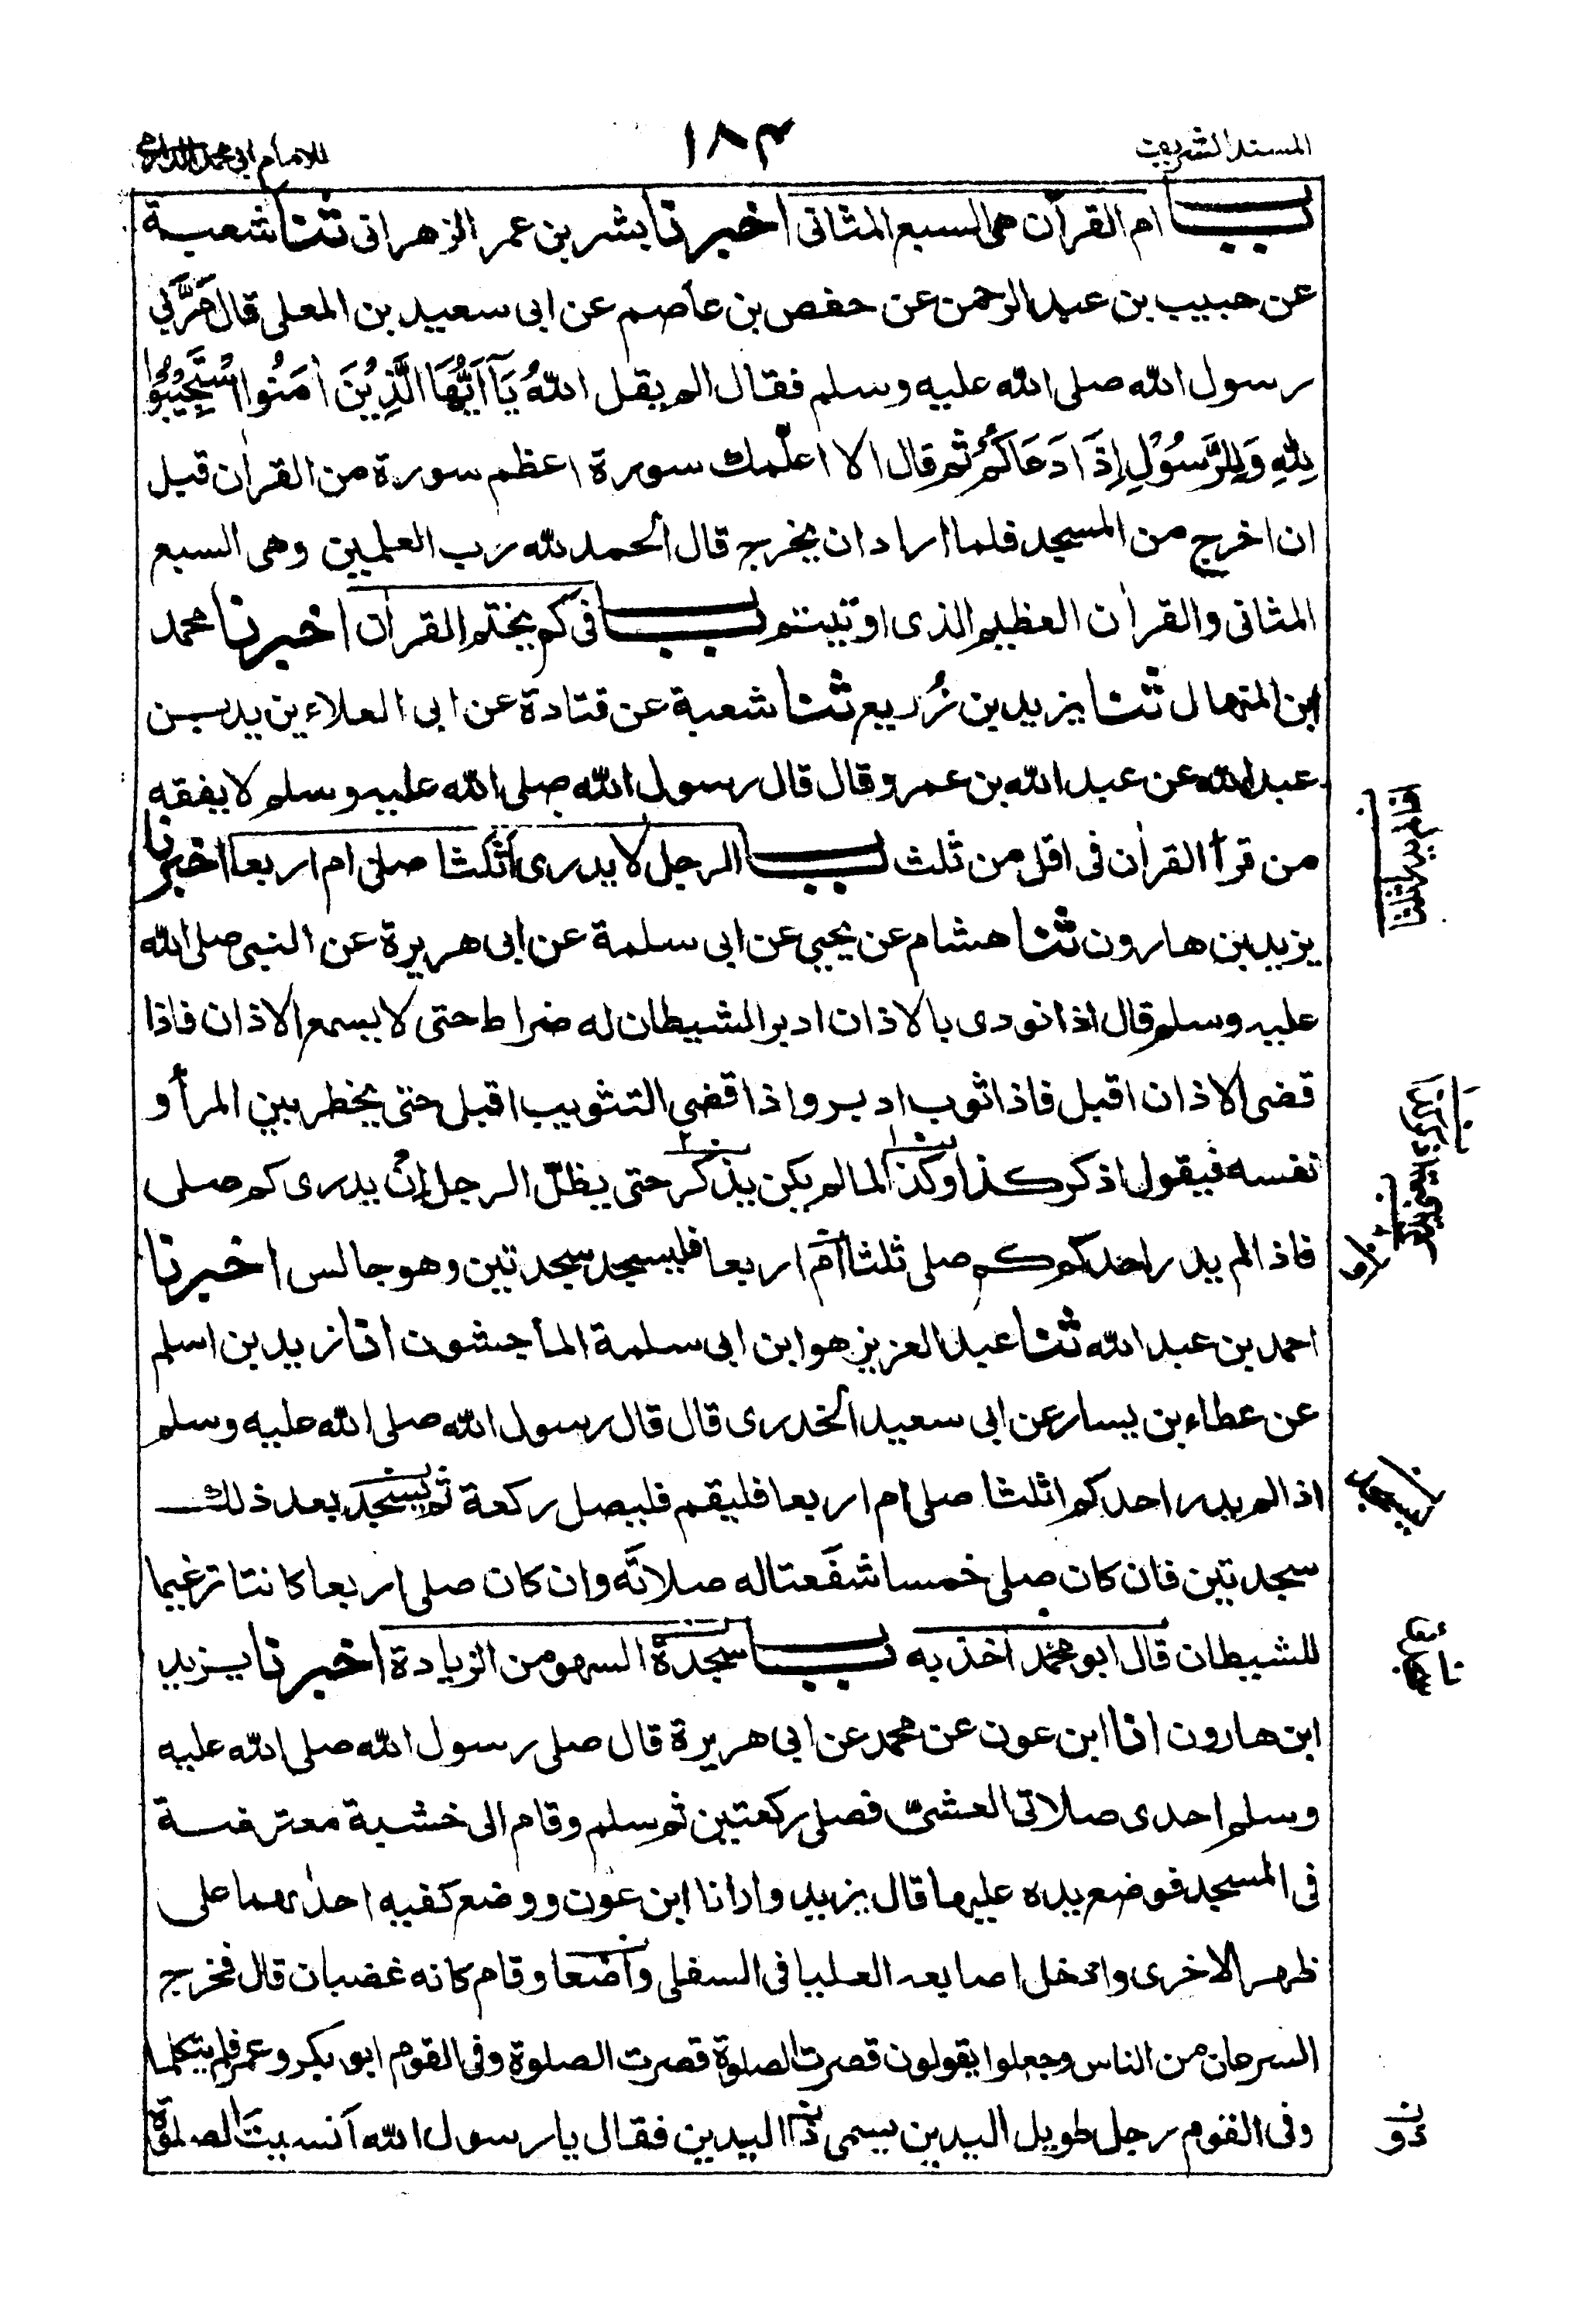 المسند الشريف
١٨٣
للامام ابي محمد الدارمي
باب ام القرآن هي السبع المثاني اخبرنا بشر بن عمر الزهراني ثنا شعبة
عن حبيب بن عبد الرحمن عن حفص بن عاصم عن ابي سعيد بن المعلى قال مَرَّ بي
رسول الله صلى الله عليه وسلم فقال الم يقل اللهُ يَآ اَيُّهَا الَّذِيْنَ اٰمَنُوا اسْتَجِيْبُوْا
لِلّٰهِ وَلِلرَّسُوْلِ اِذَا دَعَاكُمْ ثم قال الا اعلّمك سورة اعظم سورة من القراٰن قبل
ان اخرج من المسجد فلما اراد ان يخرج قال الحمد لله رب العلمين وهى السبع
المثانى والقراٰن العظيم الذى اوتيتم باب فى كم يختم القراٰن اخبرنا محمد
ابن المنهال ثنا يزيد بن زُريع ثنا شعبة عن قتادة عن ابى العلاء يزيد بن
عبد الله عن عبد الله بن عمرو قال قال رسول الله صلى الله عليه وسلم لا يفقه
من قرأ القراٰن فى اقل من ثلث باب الرجل لا يدرى أثلثا صلى ام اربعا اخبرنا
يزيد بن هارون ثنا هشام عن يحيى عن ابى سلمة عن ابى هريرة عن النبى صلى الله
عليه وسلم قال اذا نودى بالاذان ادبر الشيطان له ضراط حتى لا يسمع الاذان فاذا
قضى الاذان اقبل فاذا ثوب ادبر واذا قضى التثويب اقبل حتى يخطر بين المرأ و
نفسه فيقول اذكر كذا وكذا لما لم يكن يذكر حتى يظلّ الرجل اِنْ يدرى كم صلى
فاذا لم يدر احدكم كم صلى ثلثا أم اربعا فليسجد سجدتين وهو جالس اخبرنا
احمد بن عبد الله ثنا عبد العزيز هو ابن ابى سلمة الماجشون انا زيد بن اسلم
عن عطاء بن يسار عن ابى سعيد الخدرى قال قال رسول الله صلى الله عليه وسلم
اذا لم يدر احدكم اثلثا صلى ام اربعا فليقم فليصل ركعة ثم يسجد بعد ذلك
سجدتين فان كان صلى خمسا شفَعتا له صلاتَه وان كان صلى اربعا كانتا ترغيما
للشيطان قال ابو محمد اٰخذ به باب سجدة السهو من الزيادة اخبرنا يزيد
ابن هارون انا ابن عون عن محمد عن ابى هريرة قال صلى رسول الله صلى الله عليه
وسلم احدى صلاتى العشىّ فصلى ركعتين ثم سلم وقام الى خشبة معترضة
فى المسجد فوضع يده عليها قال يزيد وارانا ابن عون ووضع كفيه احدٰىهما على
ظهر الاخرى وادخل اصابعه العليا فى السفلى واضعا وقام كانه غضبان قال فخرج
السرعان من الناس وجعلوا يقولون قصرت الصلوة قصرت الصلوة وفى القوم ابو بكر وعمر فلم يتكلما
وفى القوم رجل طويل اليدين يسمى ذا اليدين فقال يا رسول الله أنسيتَ الصلوة